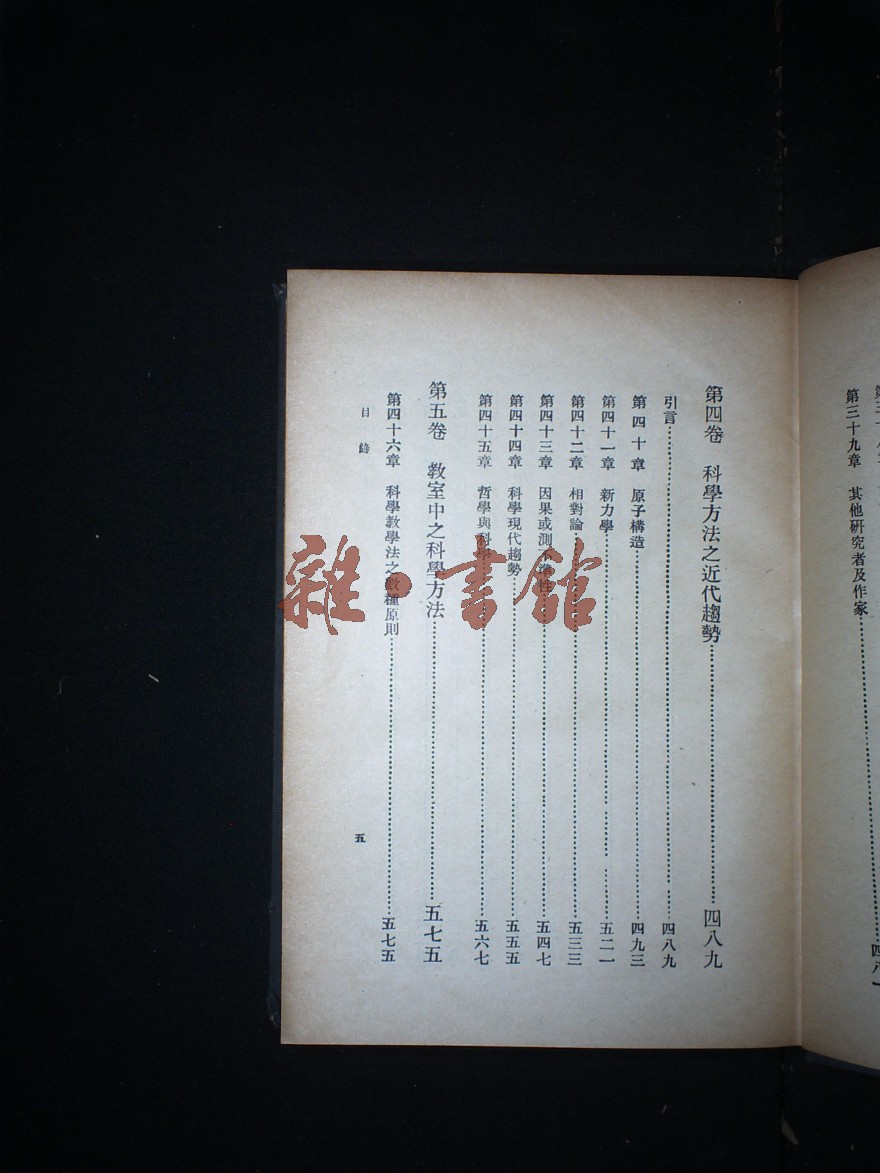 第三十九章　其他研究者及作家
四八一
第四卷　科學方法之近代趨勢……四八九
引言……四八九
第四十章　原子構造……四九三
第四十一章　新力學……五二一
第四十二章　相對論……五三三
第四十三章　因果或測不準性……五四七
第四十四章　科學現代趨勢……五五五
第四十五章　哲學與科學……五六七
第五卷　教室中之科學方法……五七五
第四十六章　科學教學法之數種原則……五七五
目錄
五
雜·書館